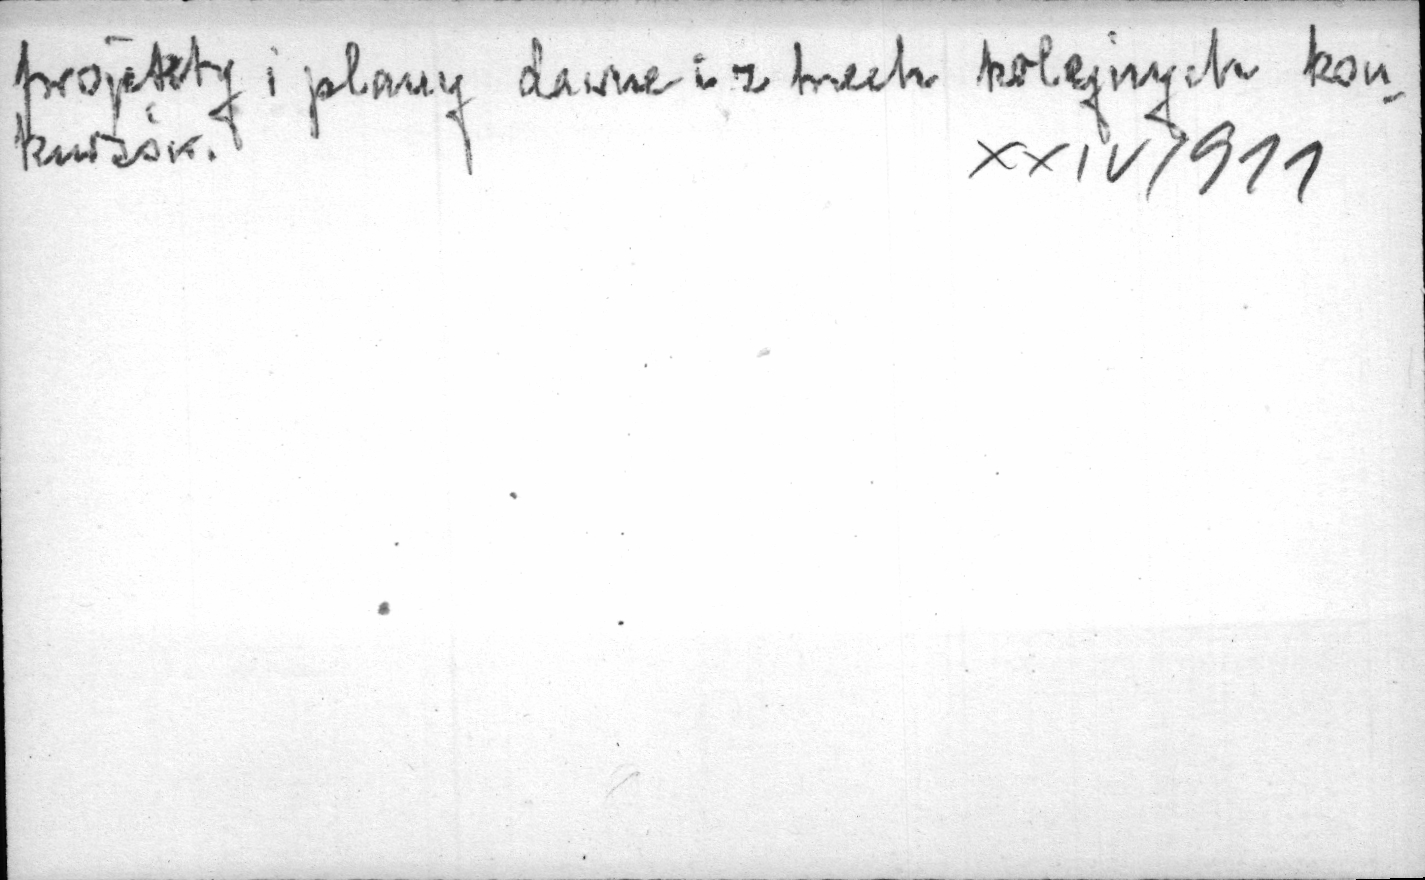 projekty i plany dawne i z trzech kolejnych kon-
kursów.
XXIV/911